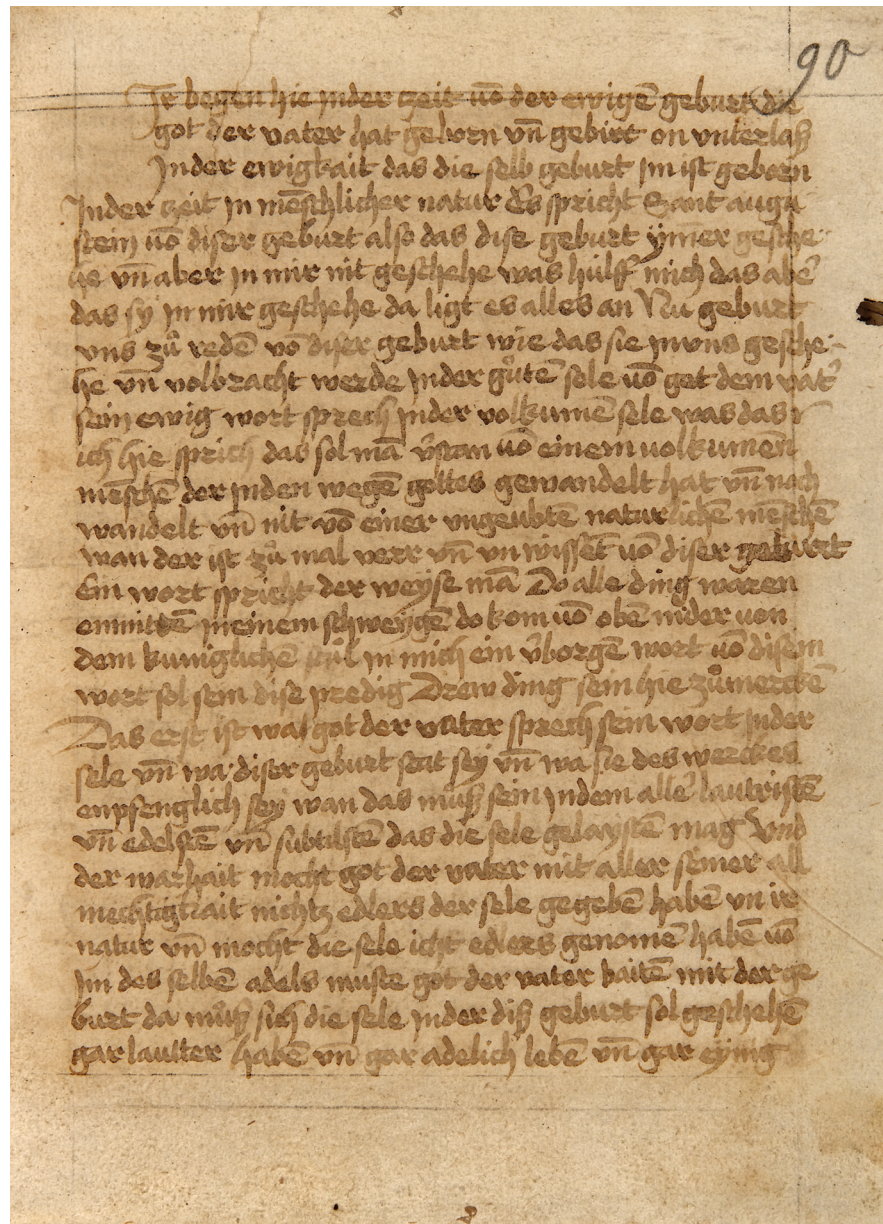 90
Ir begen hie jn der zeit vō der ewigē geburt die
got der vater hat geborn vn̄ gebirt on vnterlaß
Jn der ewigkait das die selb geburt jm ist geborn
Jn der zeit jn mēschlicher natur Es spricht Sant augu
stein vō diser geburt also das dise geburt ym̄er gesche
he vn̄ aber jn mir nit geschehe was hülff mich das abe᷑
das sy jn mir geschehe da ligt es alles an Nu geburt
vns zů redē vō diser geburt wie das sie jn vns gesche
he vn̄ volbracht werde jn der gůtē sele vō got dem vat᷑
sein ewig wort sprech jn der volkumē sele was das
ich hie sprich das sol mā v᷑stan vō einem volkumen
mēschē der jn den wegē gottes gewandelt hat vn̄ noch
wandelt vn̄ nit vō einer vngeubtē naturlichē mēschē
wan der ist zů mal verr vn̄ vnwissēt vō diser geburt
Ein wort spricht der weyse mā Do alle ding waren
enmittē jn einem schweygē do kom vō obē nider von
dem kuniglichē stul jn mich ein v᷑borgē wort vō disem
wort sol sein dise predig Drew ding sein hie zů merckē
Das erst ist wa got der vater sprech sein wort jn der
sele vn̄ wa diser geburt stat sey vn̄ wa sie des werckes
enpfenglich sey wan das můß sein jn dem alle᷑ lautristē
vn̄ edelstē vn̄ subtilstē das die sele gelaystē mag Vnd
der warhait mocht got der vater mit aller seiner all
mechtigkait nichtz edlers der sele gegebē habē vn ir
natur vn̄ mocht die sele icht edlers genomē habē vō
jm des selbē adels muste got der vater baitē mit der ge
burt da můß sich die sele jn der diß geburt sol geschehē
gar lautter habē vn̄ gar adelich lebē vn̄ gar eynig